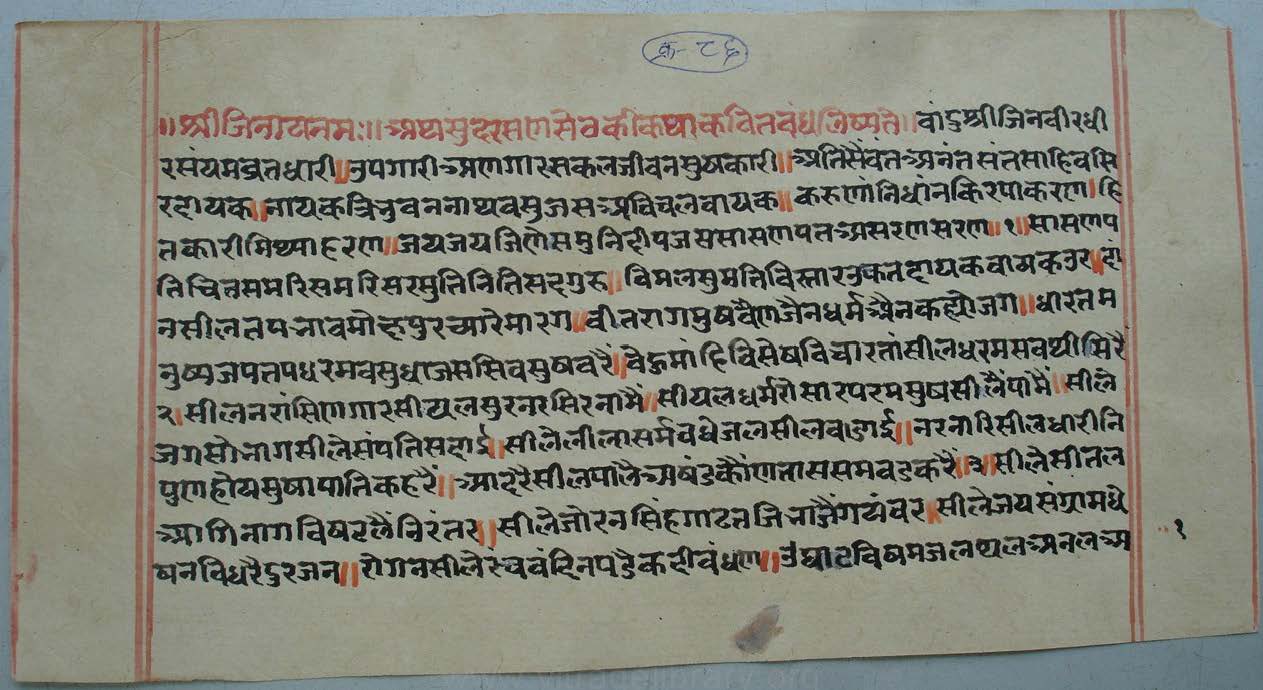 क्र-८६
॥श्रीजिनायनमः॥अथसुदरसणसेठकीकथाकवितबंधलिष्यते॥वांदुश्रीजिनवीरधी
रसंयमव्रतधारी॥उपगारीअणगारसकलजीवनसुषकारी॥अतिसैवंतअनंतसंतसाहिबसि
रदायक॥नायकत्रिभुवननाथवसुजसअविचलवायक॥करुणांनिधांनकिरपाकरण।हि
तकारीमिथ्याहरण॥जयजयजिणेसमुनिदीपजससासणपतअसरणसरण॥१॥सासणप
तिचितसमरिसमरिसरसुतिनितिसदगुरु॥विमलसुमतिविस्तारउकतदायकवायकउर॥दां
नसीलतपभावमोक्षपुरच्यारेमारग॥वीतरागमुषवैणजैनधर्मअैनकह्योजग॥धारतम
नुष्यजपतपधरमवसुधाजससिवसुषवरैं॥वैकुमांहिविसेषविचारतांसीलधरमसबथीसिरैं
२॥सीलनरांसिणगारसीयलसुरनरसिरनामैं॥सीयलधर्मरोसारपरमसुषसीलैंपामैं॥सीले
जगसोभागसीलेसंपतिसदाई॥सीलेलीलासर्मवधेजलसीलवडाई॥नरनारिसीलधारीनि
पुणहोयसुषापातिकहरैं॥आदरैसीलपालैअषंडकौंणताससमवडकरैं॥३॥सीलेसीतल
आगिनागविषटलैंनिरंतर॥सीलेजोरनसिंहगाढतजिभाजैंगयंवर॥सीलेजयसंग्रामधे
षनविधरैदुरजन॥रोगनसीले बंदिनपडैकदीबंधण॥उघाटविषमजलथलअनलअ
१